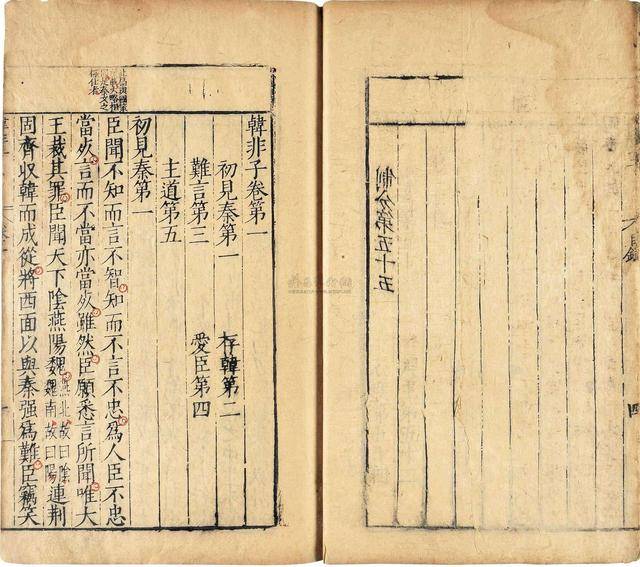 目錄
四
制分第五十五
韓非子卷第一
初見秦第一 存韓第二
難言第三 愛臣第四
主道第五
初見秦第一
臣聞不知而言不智知而不言不忠爲人臣不忠
當死言而不當亦當死雖然臣願悉言所聞唯大
王裁其罪臣聞天下陰燕陽魏燕北故曰陰魏南故曰陽連荆
固齊収韓而成從將西面以與秦强爲難臣竊笑